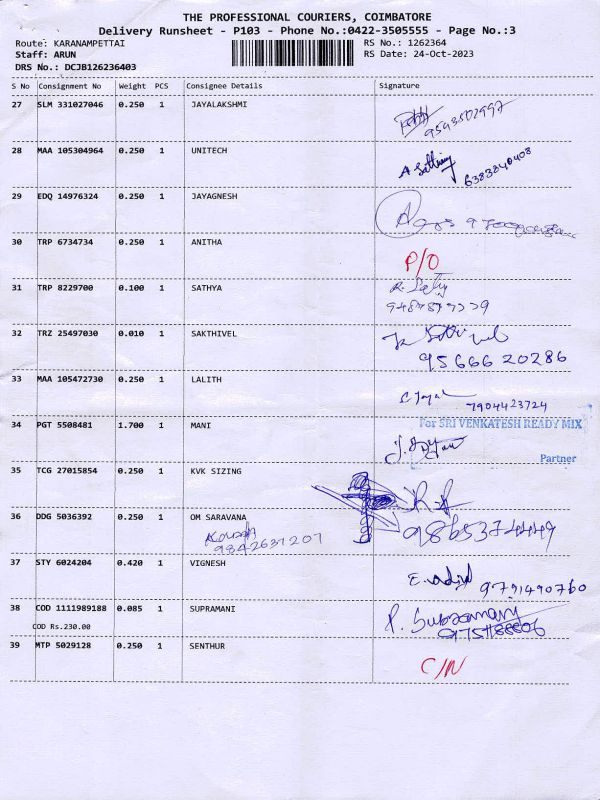 THE PROFESSIONAL COURIERS, COIMBATORE
Delivery Runsheet - P103 - Phone No.:0422-3505555 - Page No.:3
Route: KARANAMPETTAI RS No.: 1262364
Staff: ARUN RS Date: 24-Oct-2023
DRS No.: DCJB126236403
S No Consignment No Weight PCS Consignee Details Signature
27 SLM 331027046 0.250 1 JAYALAKSHMI
28 MAA 105304964 0.250 1 UNITECH
6383840408
29 EDQ 14976324 0.250 1 JAYAGNESH
30 TRP 6734734 0.250 1 ANITHA
P/O
31 TRP 8229700 0.100 1 SATHYA
32 TRZ 25497030 0.010 1 SAKTHIVEL
95666 20286
33 MAA 105472730 0.250 1 LALITH
7904423724
34 PGT 5508481 1.700 1 MANI
For SRI VENKATESH READY MIX
Partner
35 TCG 27015854 0.250 1 KVK SIZING
36 DDG 5036392 0.250 1 OM SARAVANA
9865374449
9842637207
37 STY 6024204 0.420 1 VIGNESH
9791490760
38 COD 1111989188 0.085 1 SUPRAMANI
COD Rs.230.00
P. Subramani
39 MTP 5029128 0.250 1 SENTHUR
C/N